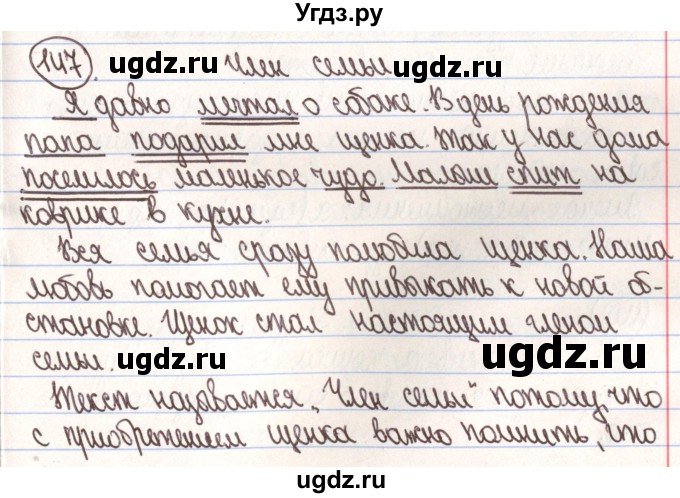 Угдз.ру
147. Член семьи
Я давно мечтал о собаке. В день рождения
папа подарил мне щенка. Так у нас дома
поселилось маленькое чудо. Малыш спит на
коврике в кухне.
Вся семья сразу полюбила щенка. Наша
любовь помогает ему привыкать к новой об-
становке. Щенок стал настоящим членом
семьи.
Текст называется „Член семьи" потому, что
с приобретением щенка важно помнить, что
ugdz.ru
ugdz.ru
ugdz.ru
ugdz.ru
ugdz.ru
ugdz.ru
ugdz.ru
ugdz.ru